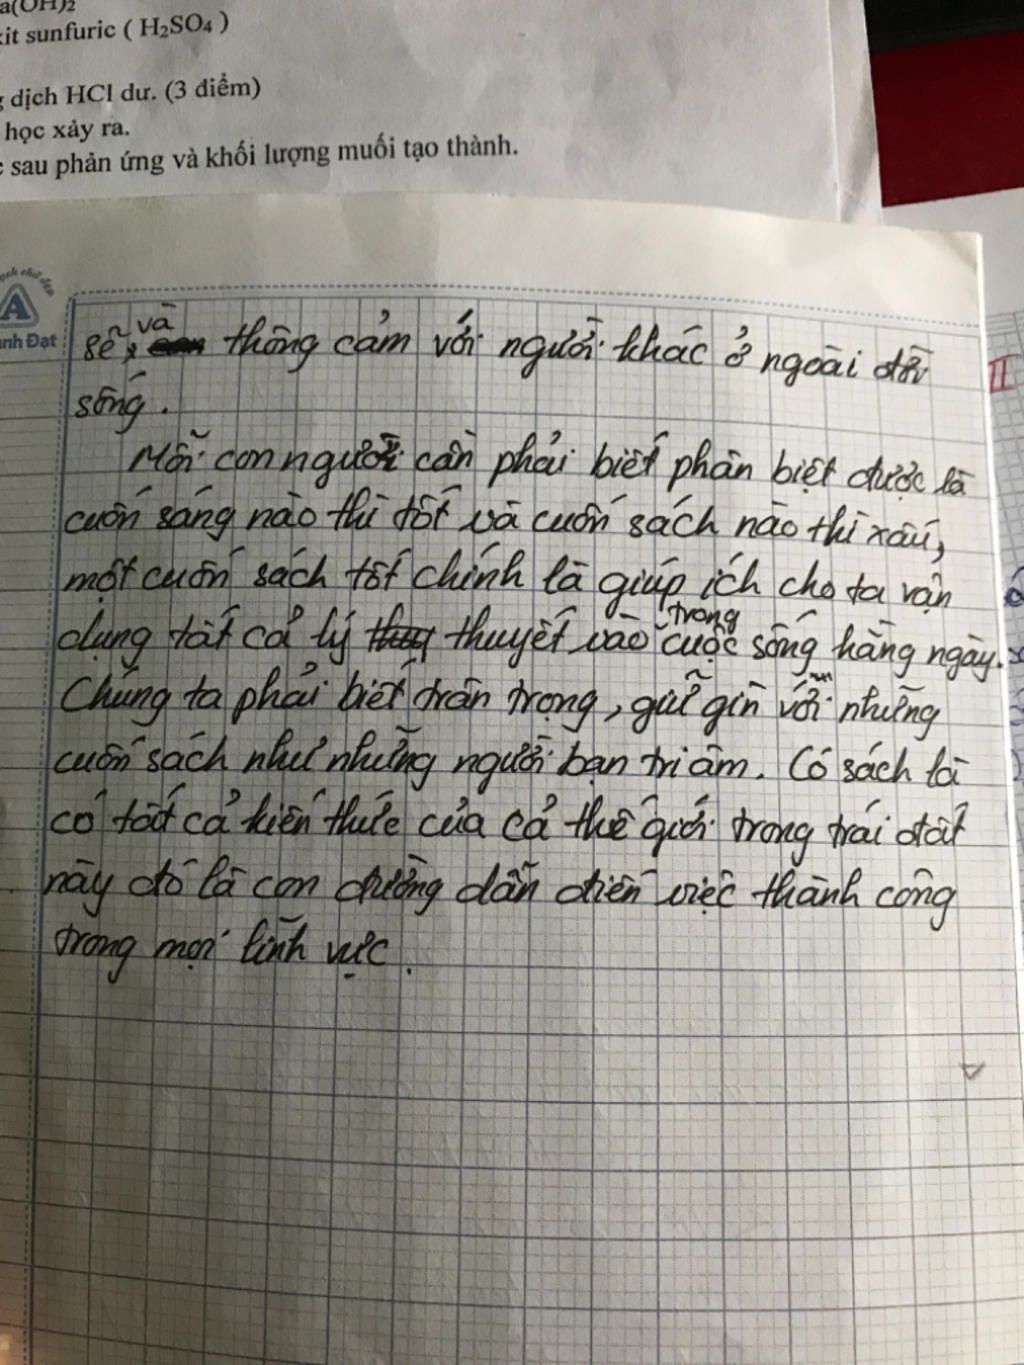 a(OH)₂
xit sunfuric ( H₂SO₄ )
dịch HCl dư. (3 điểm)
học xảy ra.
sau phản ứng và khối lượng muối tạo thành.
A
nh Đạt
II
và
sẽ, thông cảm với người khác ở ngoài đời
sống.
Mỗi con người cần phải biết phân biệt được là
cuốn sáng nào thì tốt và cuốn sách nào thì xấu,
một cuốn sách tốt chính là giúp ích cho ta vận
trong
dụng tất cả lý thuyết vào cuộc sống hằng ngày.
Chúng ta phải biết trân trọng, giữ gìn với những
cuốn sách như những người bạn tri âm. Có sách là
có tất cả kiến thức của cả thế giới trong trái đất
này đó là con đường dẫn điến việc thành công
trong mọi lĩnh vực.